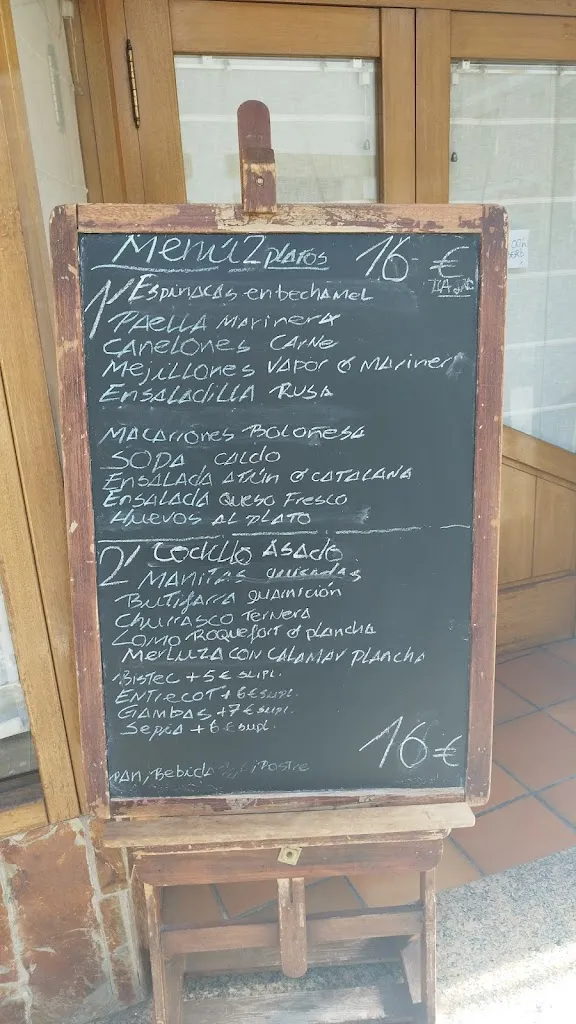 Menú 2 platos 16 €
IVA inc
1º Espinacas en bechamel
Paella Marinera
Canelones Carne
Mejillones vapor ó Mariner
Ensaladilla Rusa
Macarrones Boloñesa
SOPA caldo
Ensalada Atún ó CATALANA
Ensalada Queso Fresco
Huevos AL PLATO
2º Codillo Asado
Manitas guisadas
Butifarra guarnición
Churrasco Ternera
Lomo Roquefort ó plancha
Merluza con calamar plancha
Bistec + 5 € supl.
Entrecot + 6 € supl.
Gambas + 7 € supl.
Sepia + 6 € supl.
16 €
Pan, Bebida Postre